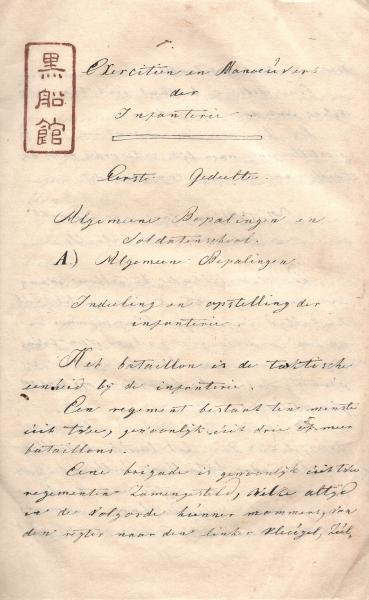 黒船館
Exercitien en Manoeúvers
der
Infanterie.
Eerste Gedeelte.
Algemeene Bepalingen en
Soldatenschool.
A.) Algemeene Bepalingen
Indeeling en opstelling der
infanterie.
Het bataillon is de taktische
eenheid bij de infanterie.
Een regiment bestaat ten minste
úit twee, gewoonlijk úit drie of meer
bataillons.
Eene brigade is gewoonlijk úit twee
regimenten zamengesteld, welke altyd
in de volgorde húnner nommers, van
den regter naar den linker vleúgel, zúl,